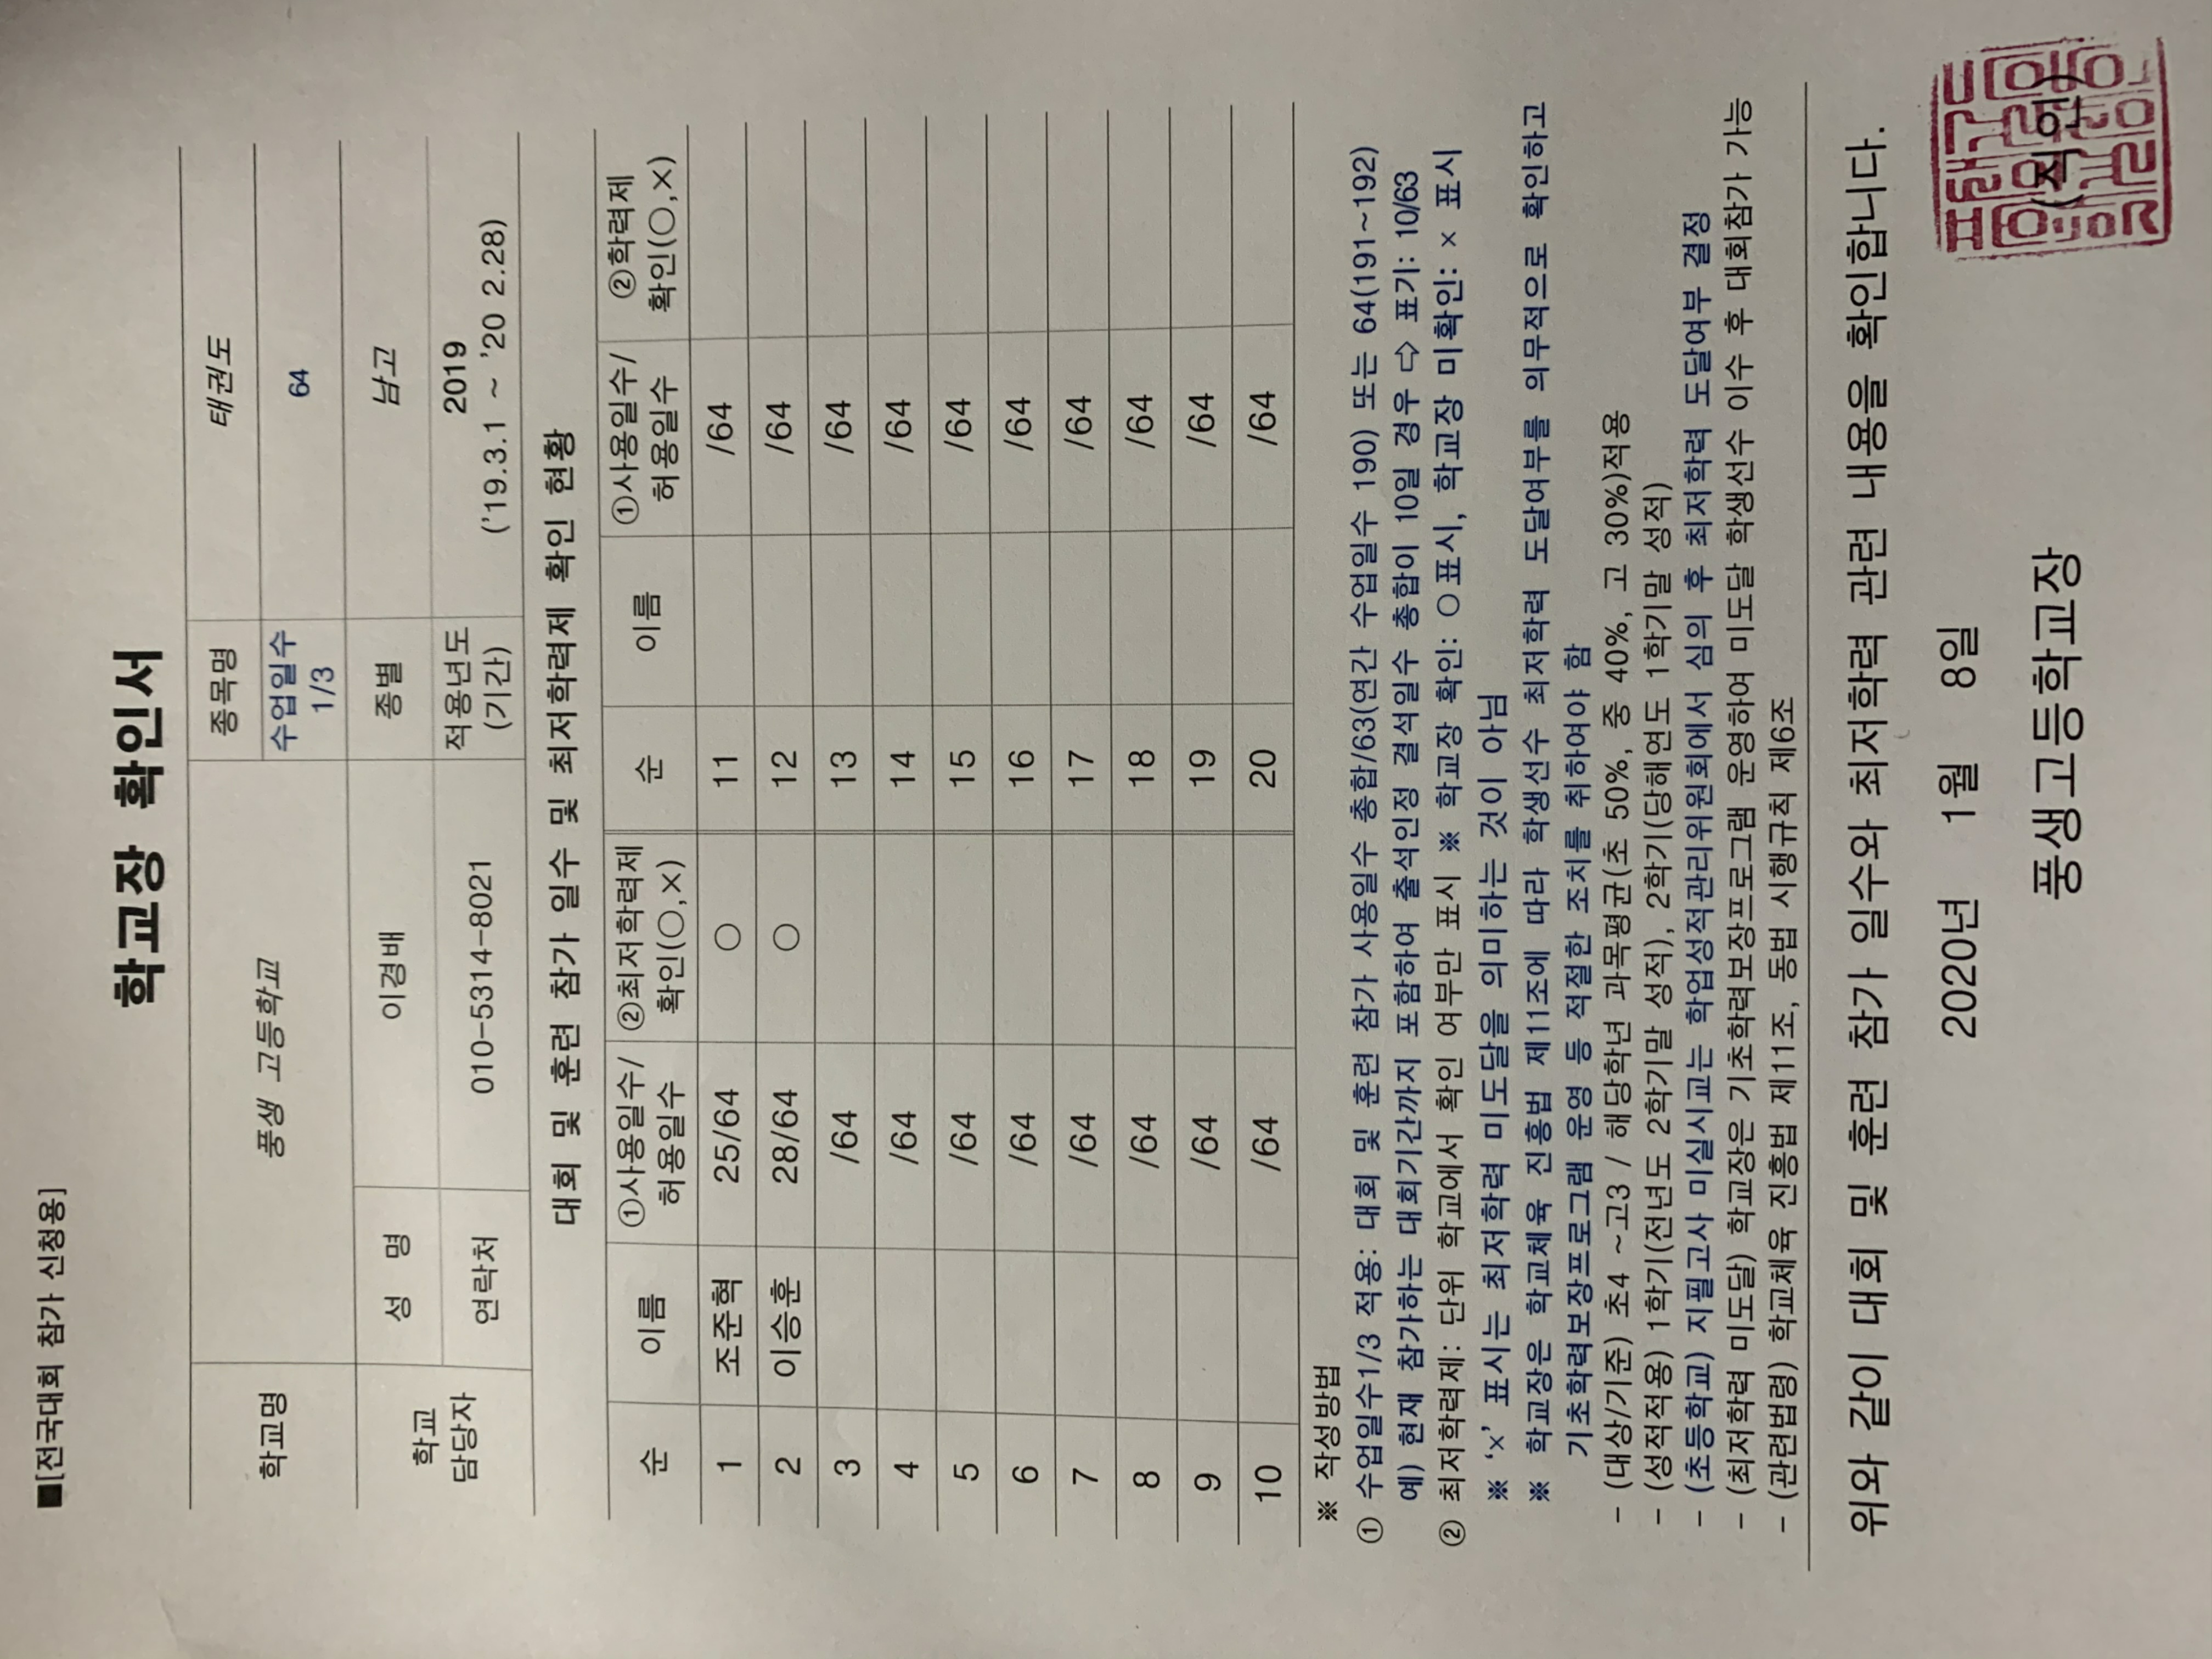 ■[전국대회 참가 신청용]
학교장 확인서
학교명 풍생 고등학교 종목명 태권도
수업일수 1/3 64
학교 담당자 성 명 이경배 종별 남고
연락처 010-5314-8021 적용년도 (기간) 2019 ('19.3.1 ~ '20 2.28)
대회 및 훈련 참가 일수 및 최저학력제 확인 현황
순 이름 ①사용일수/허용일수 ②최저학력제 확인(○,×) 순 이름 ①사용일수/허용일수 ②학력제 확인(○,×)
1 조준혁 25/64 ○ 11 /64
2 이승훈 28/64 ○ 12 /64
3 /64 13 /64
4 /64 14 /64
5 /64 15 /64
6 /64 16 /64
7 /64 17 /64
8 /64 18 /64
9 /64 19 /64
10 /64 20 /64
※ 작성방법
① 수업일수1/3 적용: 대회 및 훈련 참가 사용일수 총합/63(연간 수업일수 190) 또는 64(191~192)
예) 현재 참가하는 대회기간까지 포함하여 출석인정 결석일수 총합이 10일 경우 ⇨ 표기: 10/63
② 최저학력제: 단위 학교에서 확인 여부만 표시 ※ 학교장 확인: ○표시, 학교장 미확인: × 표시
※ '×' 표시는 최저학력 미도달을 의미하는 것이 아님
※ 학교장은 학교체육 진흥법 제11조에 따라 학생선수 최저학력 도달여부를 의무적으로 확인하고
기초학력보장프로그램 운영 등 적절한 조치를 취하여야 함
- (대상/기준) 초4 ~고3 / 해당학년 과목평균(초 50%, 중 40%, 고 30%)적용
- (성적적용) 1학기(전년도 2학기말 성적), 2학기(당해연도 1학기말 성적)
- (초등학교) 지필고사 미실시교는 학업성적관리위원회에서 심의 후 최저학력 도달여부 결정
- (최저학력 미도달) 학교장은 기초학력보장프로그램 운영하여 미도달 학생선수 이수 후 대회참가 가능
- (관련법령) 학교체육 진흥법 제11조, 동법 시행규칙 제6조
위와 같이 대회 및 훈련 참가 일수와 최저학력 관련 내용을 확인합니다.
2020년 1월 8일
풍생고등학교장 (직인)